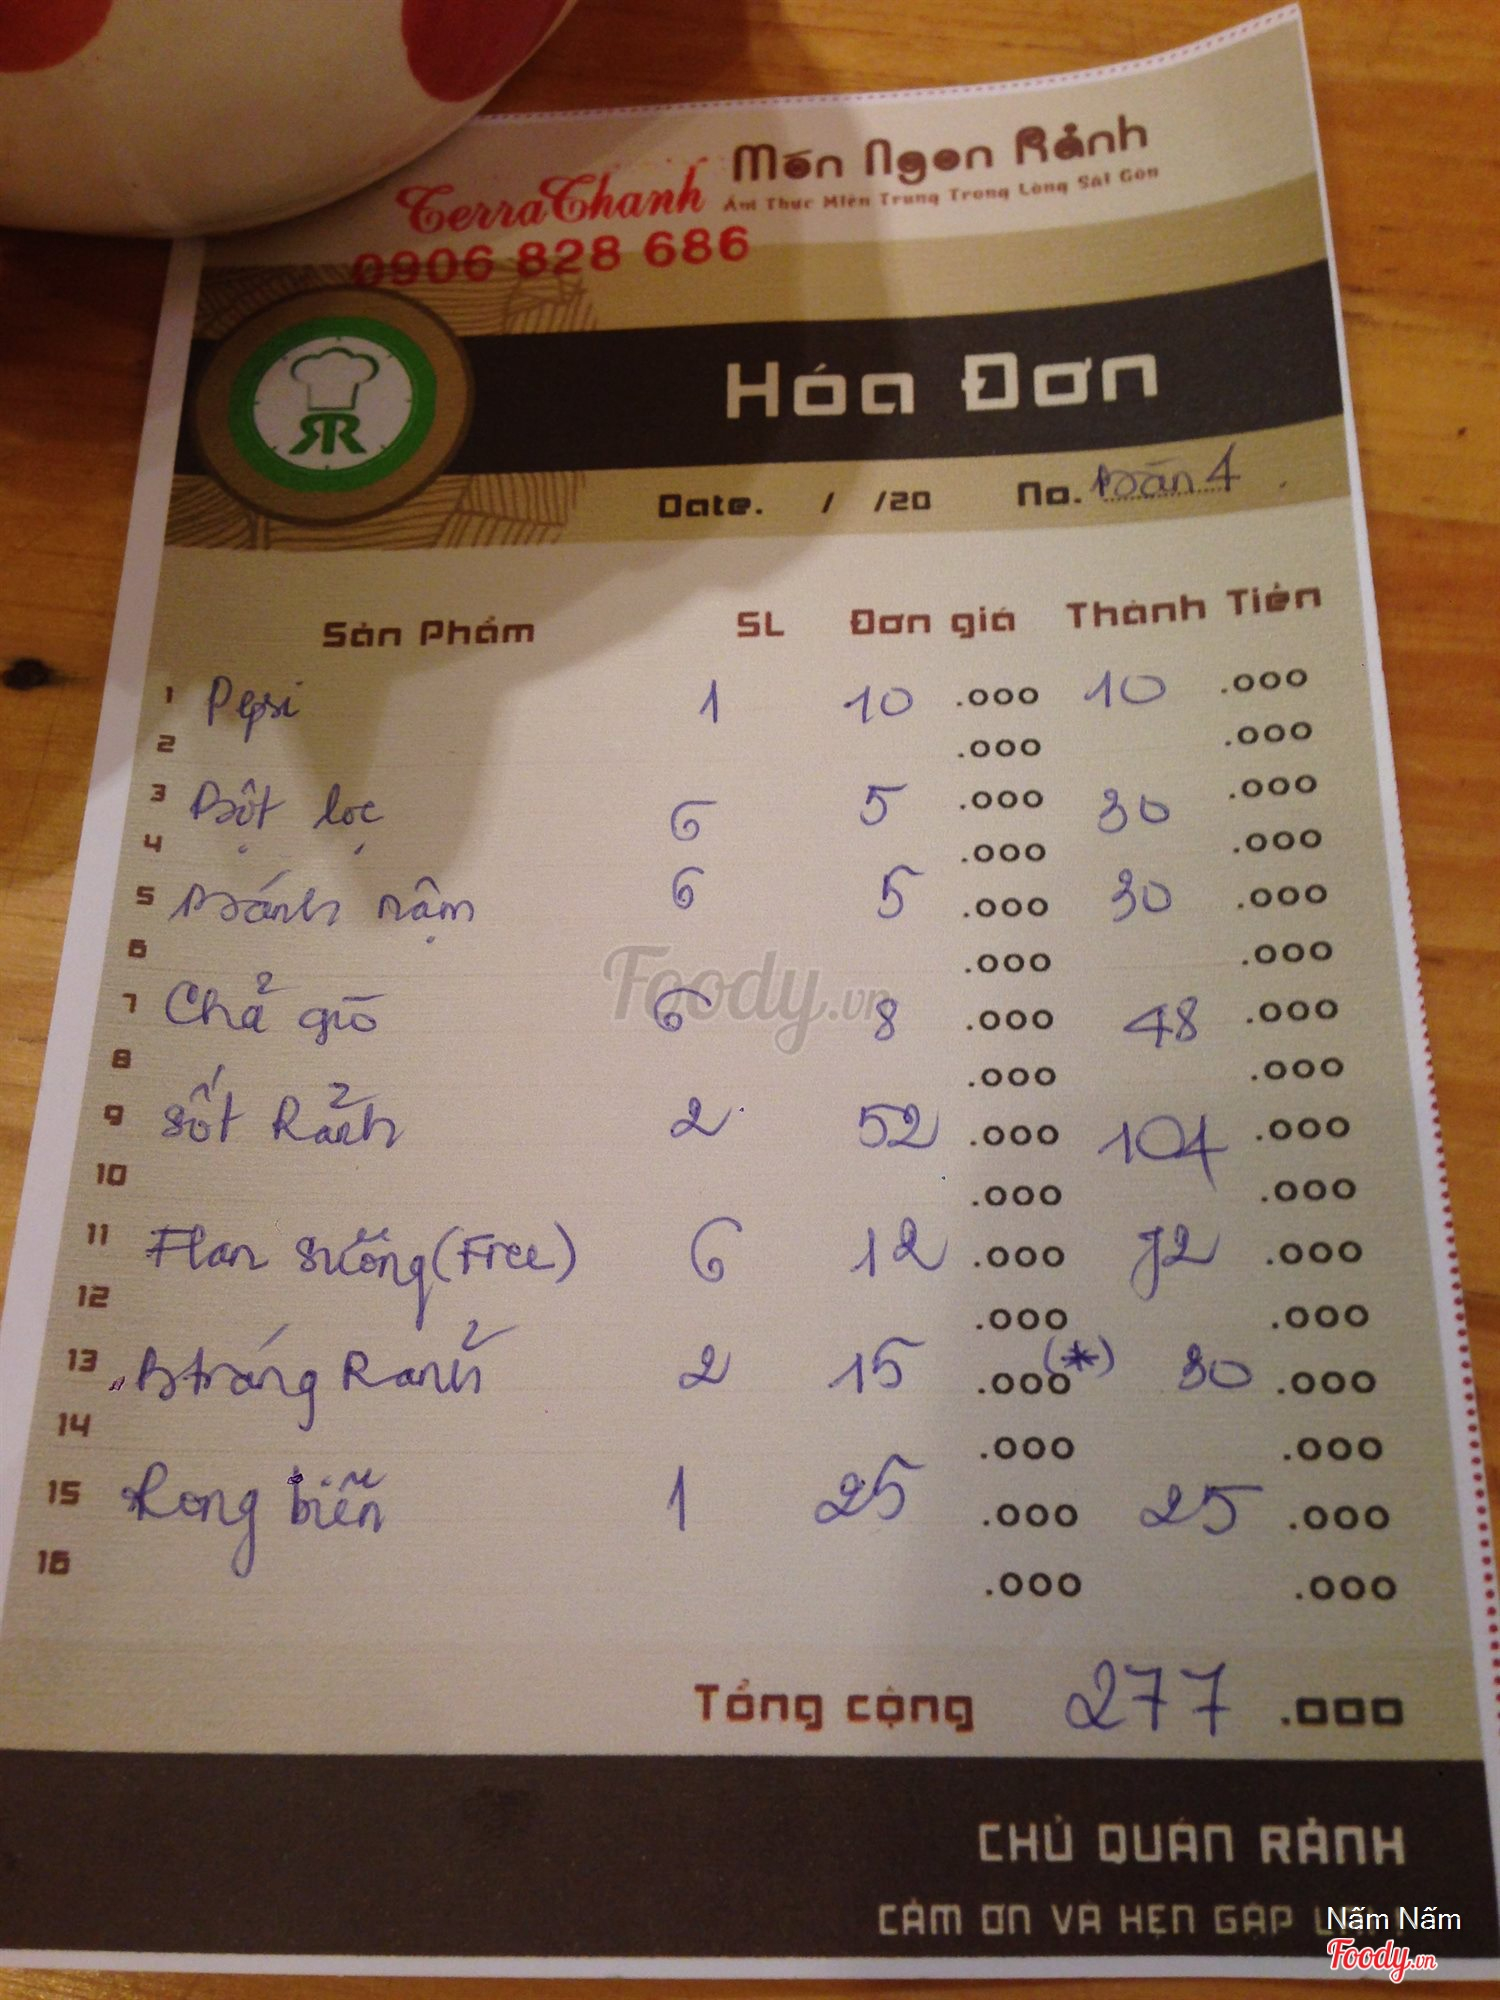 Món Ngon Rảnh
TerraChanh Ẩm Thực Miền Trung Trong Lòng Sài Gòn
0906 828 686
Hóa Đơn
RR
Date. / /20 No. Bàn 4
Sản Phẩm SL Đơn giá Thành Tiền
1 Pepsi 1 10 .000 10 .000
2 .000 .000
3 Bột lọc 6 5 .000 30 .000
4 .000 .000
5 Bánh nậm 6 5 .000 30 .000
6 .000 .000
7 Chả giò 6 8 .000 48 .000
8 .000 .000
9 Sốt Rảnh 2 52 .000 104 .000
10 .000 .000
11 Flan sương (Free) 6 12 .000 72 .000
12 .000 .000
13 Btráng Rảnh 2 15 .000 (*) 30 .000
14 .000 .000
15 Rong biển 1 25 .000 25 .000
16 .000 .000
Tổng cộng 277 .000
CHỦ QUÁN RẢNH
CẢM ƠN VÀ HẸN GẶP
Nấm Nấm
Foody.vn
Foody.vn